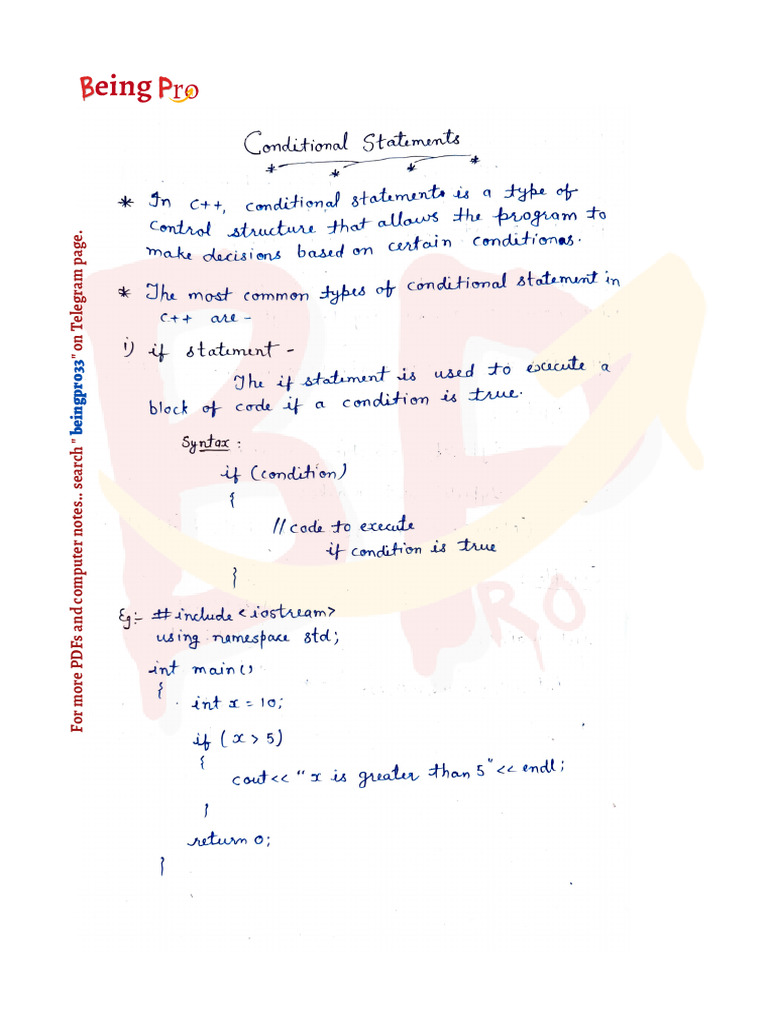 Being Pro
Conditional Statements
* In C++, conditional statements is a type of
control structure that allows the program to
make decisions based on certain conditionas.
* The most common types of conditional statement in
C++ are -
i) if statement -
The if statement is used to execute a
block of code if a condition is true.
Syntax :
if (condition)
{
// code to execute
if condition is true
}
Eg:- #include <iostream>
using namespace std;
int main()
{
int x = 10;
if ( x > 5)
{
cout<< "x is greater than 5" << endl;
}
return 0;
}
For more PDFs and computer notes.. search " beingpro33" on Telegram page.
BP
PRO